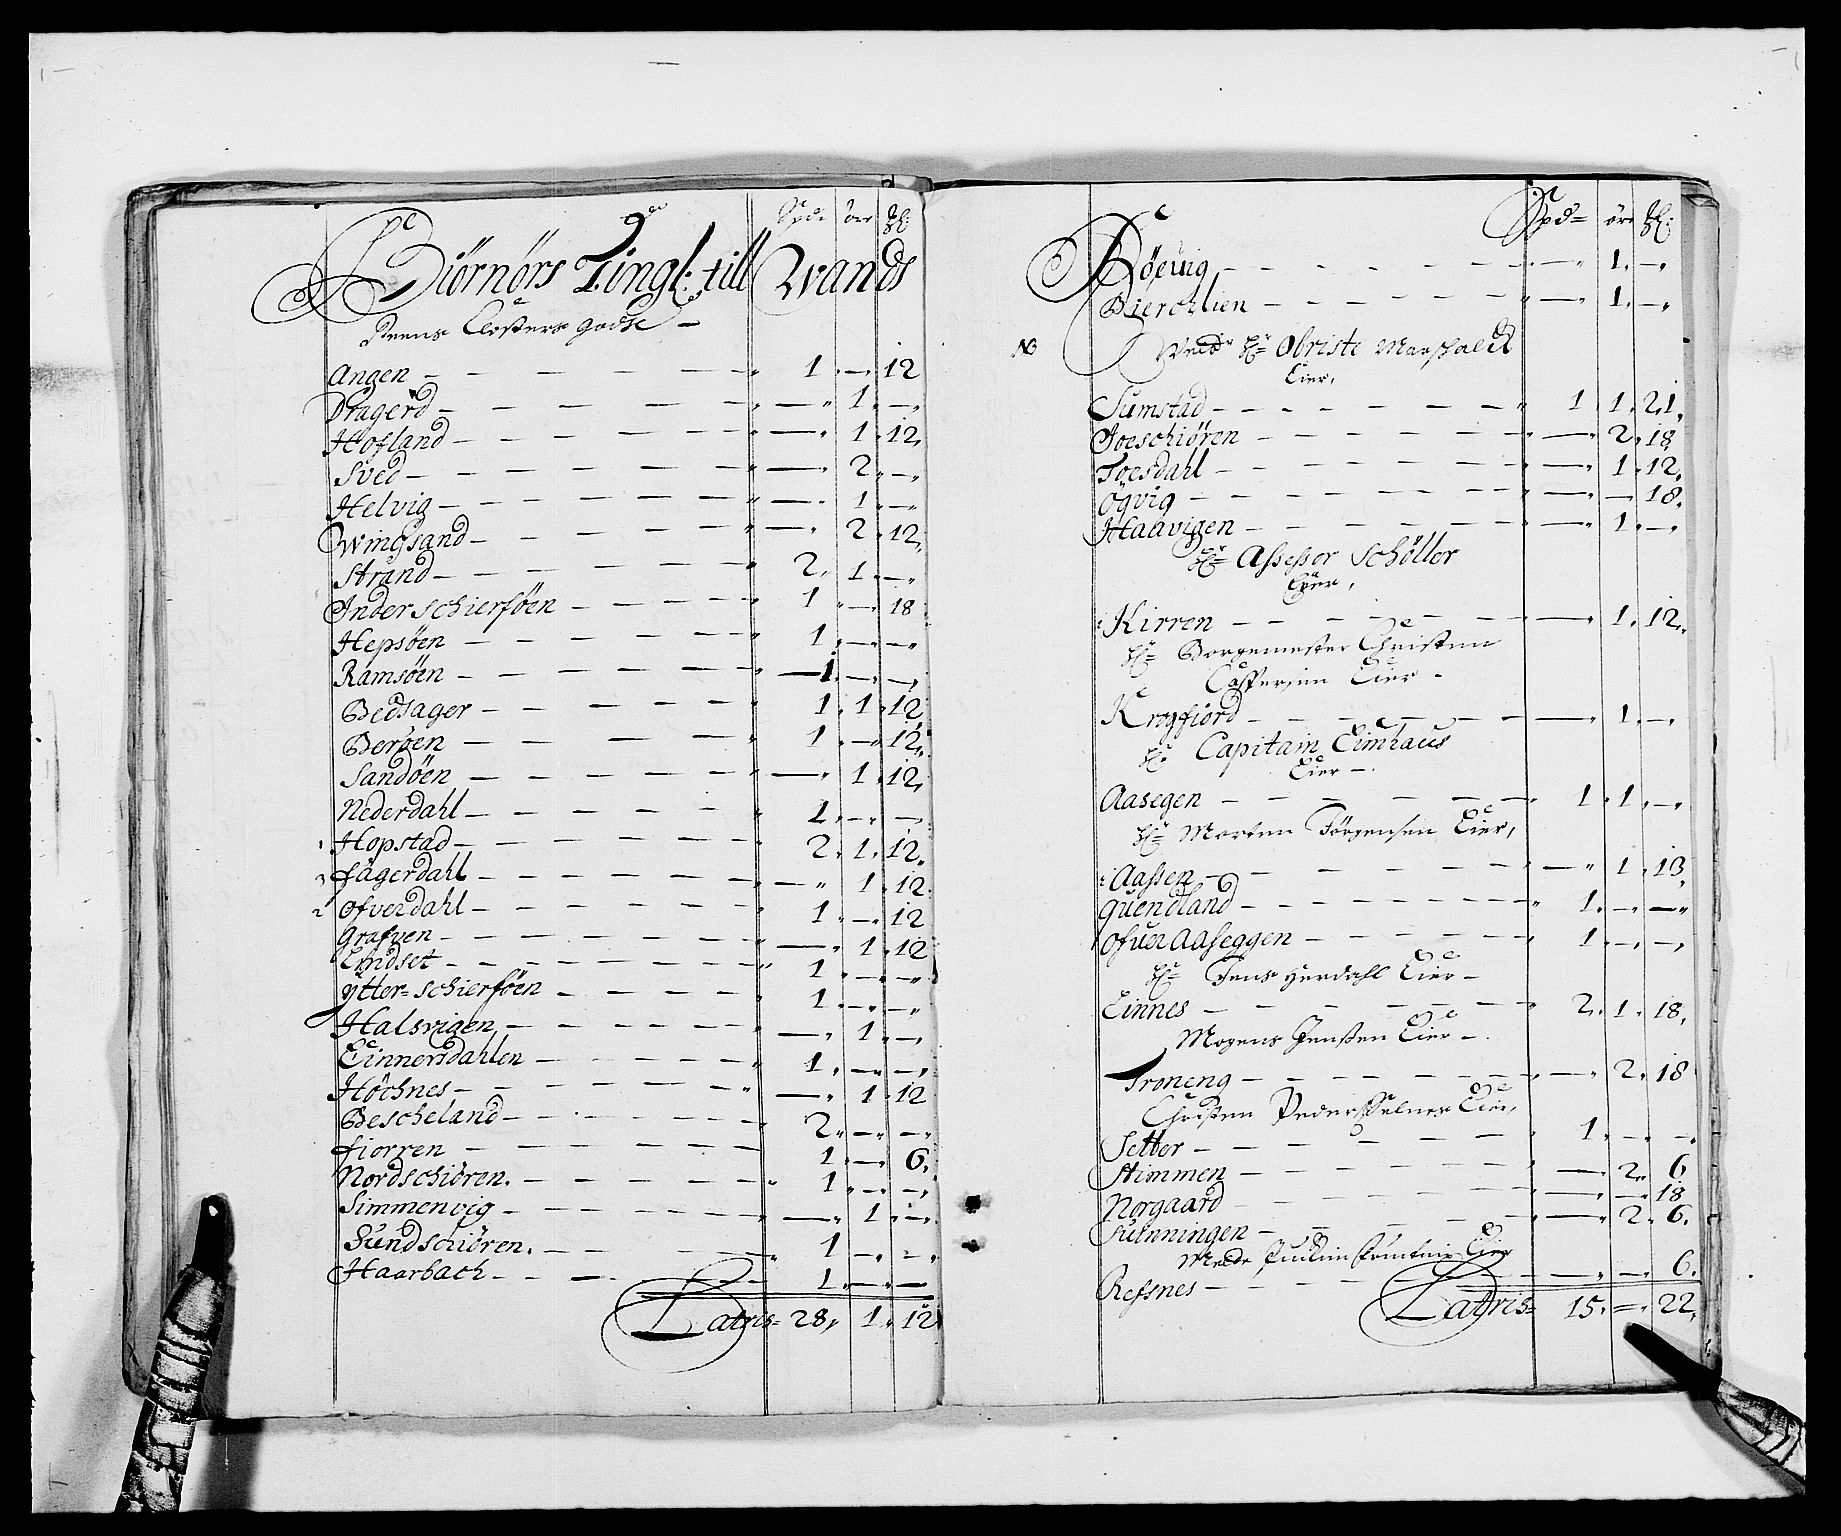 Spd: öre ₰:
Biörnörs Tingl: till Wands
Reens Closters godse —
Angen — — — — — „ 1 „ — „ 12
Dragerd — — — — „ — „ 1 „ — „
Hofland — — — — „ — „ 1 „ 12 „
Sved — — — — „ — „ 2 „ — „
Helvig — — — — „ — „ 1 „ — „
Wingsand — — — — „ — „ 2 „ 12 „
Strand — — — — „ 2 „ 1 „ — „
Inderschierföen — — — — „ 1 „ — „ 18
Hepsöen — — — — „ 1 „ — „ — „
Ramsöen — — — — „ — 1 „ — „ — „
Bedsager — — — — „ 1 „ 1 „ 12
Beröen — — — — „ 1 „ — „ 12 „
Sandöen — — — — „ — „ 1 „ 12 „
Nederdahl — — — — „ 1 „ — „ — „
1 Hopstad — — — — „ 2 „ 1 „ 12 „
3 fagerdahl — — — — „ — „ 1 „ 12 „
2 ofverdahl — — — — „ 1 „ — „ 12
Grafven — — — — „ — „ 1 „ 12
Lindset — — — — „ 1 „ — „ — „
ÿtter=schierföen — — — — „ 1 „ — „ — „
Halsvigen — — — — „ — „ 1 „ — „
Einnersdahlen — — — — „ 1 „ — „ — „
Höchnes — — — — „ — „ 1 „ 12
Bescheland — — — — „ 2 „ — „ — „
fiorren — — — — 1 „ — „ 6 „
Nordschiören. — — — — „ 1 „ — „ — „
Simmenvig — — — — „ — „ 1 „ — „
Sundschiören. — — — — „ 1 — „ — „
Haarbach — — — — 1 „ — „ —
Latris= 28 „ 1 „ 12
Spd= öre ₰:
Röeüig — — — — „ — „ 1 „ — „
Bierchlien — — — — „ — „ 1 „ — „
NB Welb: Hr= Obriste Marschalck
Eier,
Sumstad — — — — „ 1 1 „ 21 „
Joeschiören — — — — „ — „ 2 „ 18
Toesdahl — — — — „ — „ 1 „ 12 „
Ögvig — — — — „ — „ — 18 „
Haavigen — — — — „ — „ 1 „ — „
Hr= Assessor Schöller
Eÿer,
Kirren — — — — — „ 1 „ 12 „
Hr= Borgemester Christen
Caspersen Eier —
Krogfiord — — — — — „ 1 „ — „
Hr. Capitain Eimhaus
Eier —
Aasegen — — — — „ 1 „ 1 „ — „
Hr= Morten Jörgensen Eier,
Aassen — — — — „ — „ 1 „ 13
quendland — — — — „ 1 „ — „ — „
ofuer Aaseggen — — — — „ 1 „ — „ — „
Hr= Jens Hierdahl Eier —
Einnes — — — — „ 2 „ 1 „ 18 „
Mogens Jenssen Eier —
Troneng — — — — „ — „ 2 „ 18
Christen Peders Eier,
Setter — — — — „ 1 „ — „ — „
Stimmen — — — — „ — „ 2 „ 6
Norgaard — — — — „ — „ — „ 18
Suenningen — — — — „ — „ 2 „ 6 „
Eier
Refsnes — — — — — „ — „ 6 „
Latris= 15 „ = „ 22 „